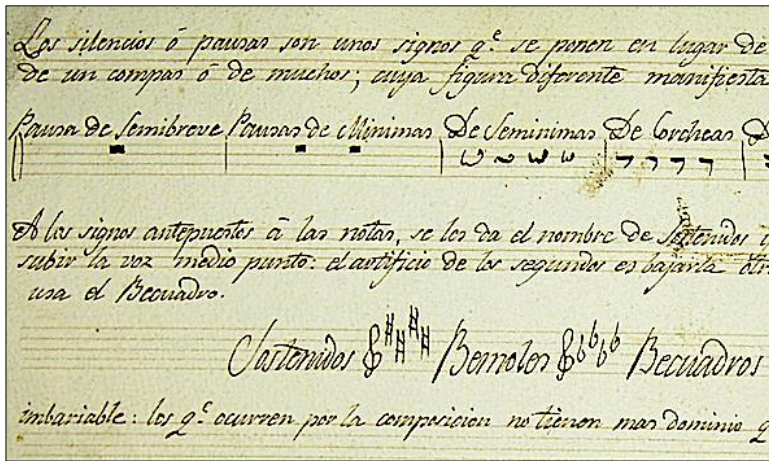 Los silencios ó pausas son unos signos q.e se ponen en lugar de
de un compas ó de muchos; cuya figura diferente manifiesta
Pausa de Semibreve Pausas de Minimas De Seminimas De Corcheas D
A los signos antepuestos á las notas, se les da el nombre de Sostenidos
subir la voz medio punto: el artificio de los segundos es bajarla otr
usa el Becuadro.
Sostenidos Bemoles Becuadros
imbariable: los q.e ocurren por la composicion no tienen mas dominio q